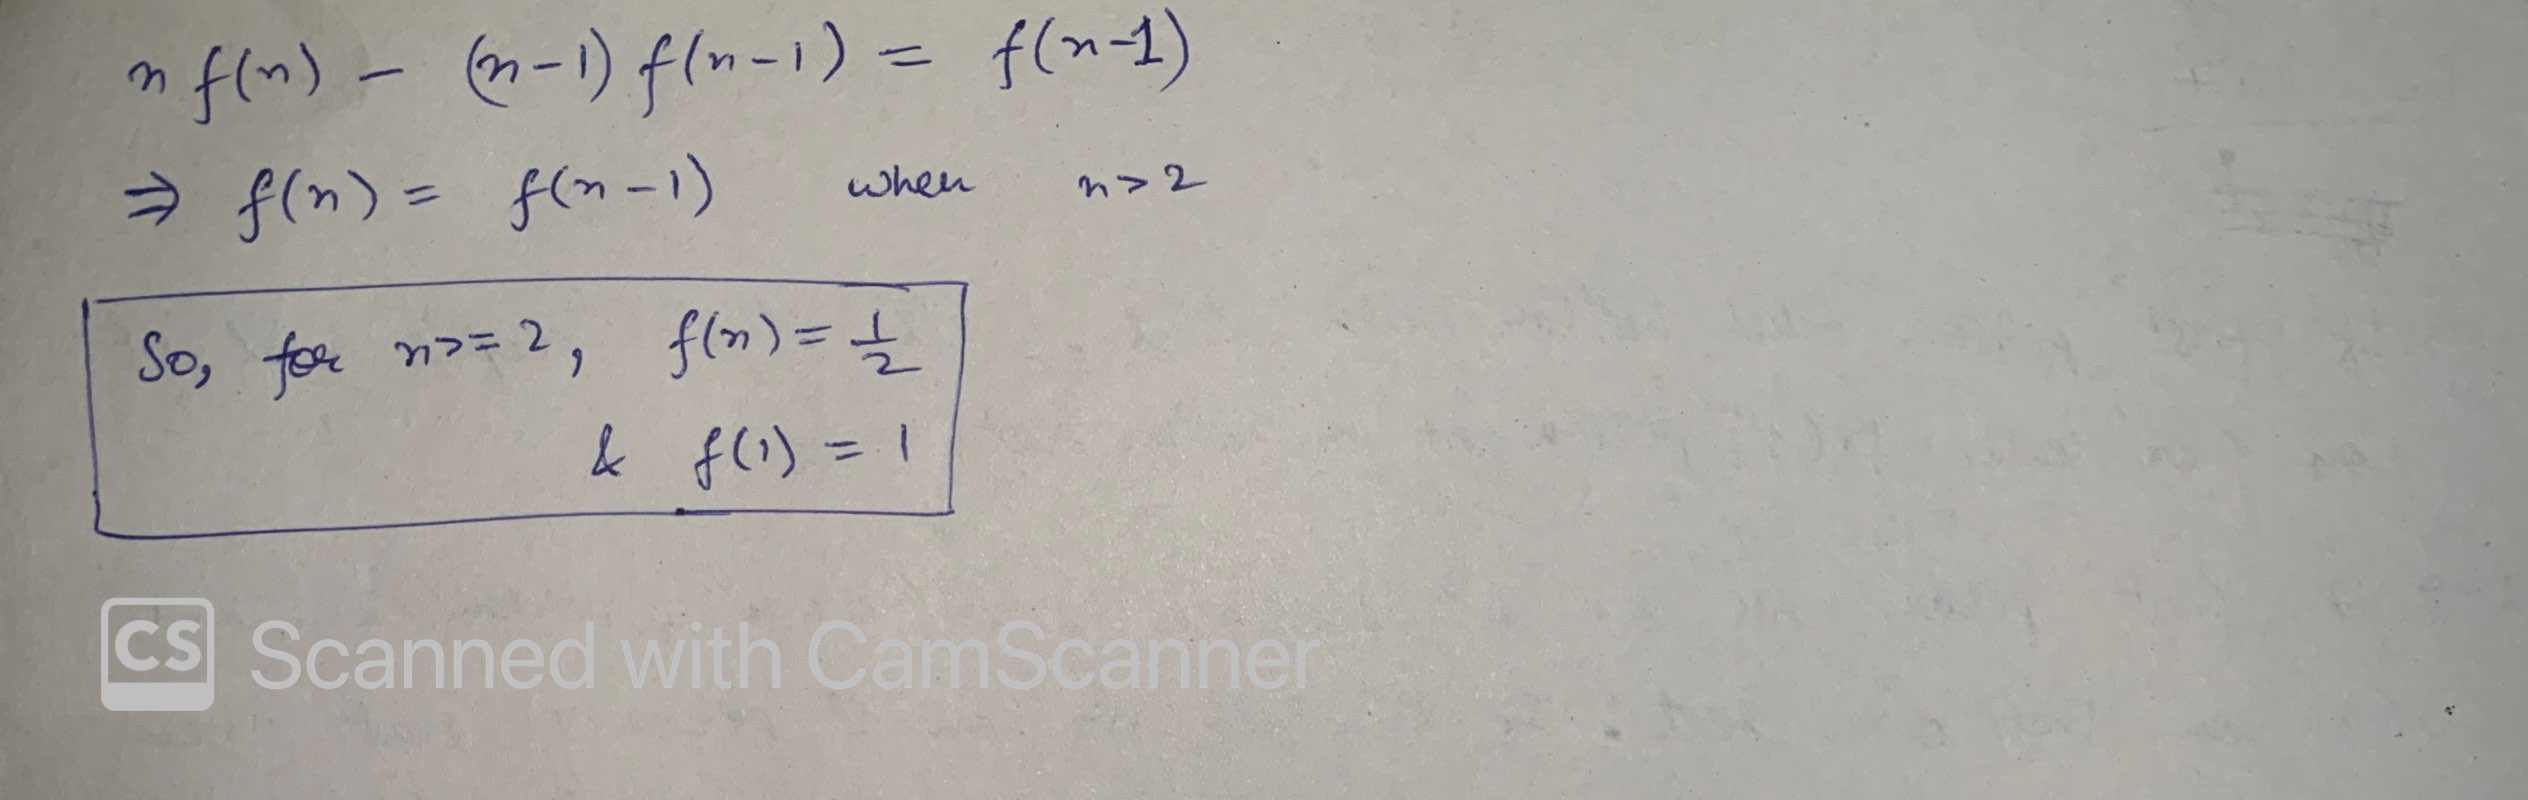 n f(n) - (n-1) f(n-1) = f(n-1)
⇒ f(n) = f(n-1) when n>2
So, for n>=2, f(n) = 1/2
& f(1) = 1
CS Scanned with CamScanner